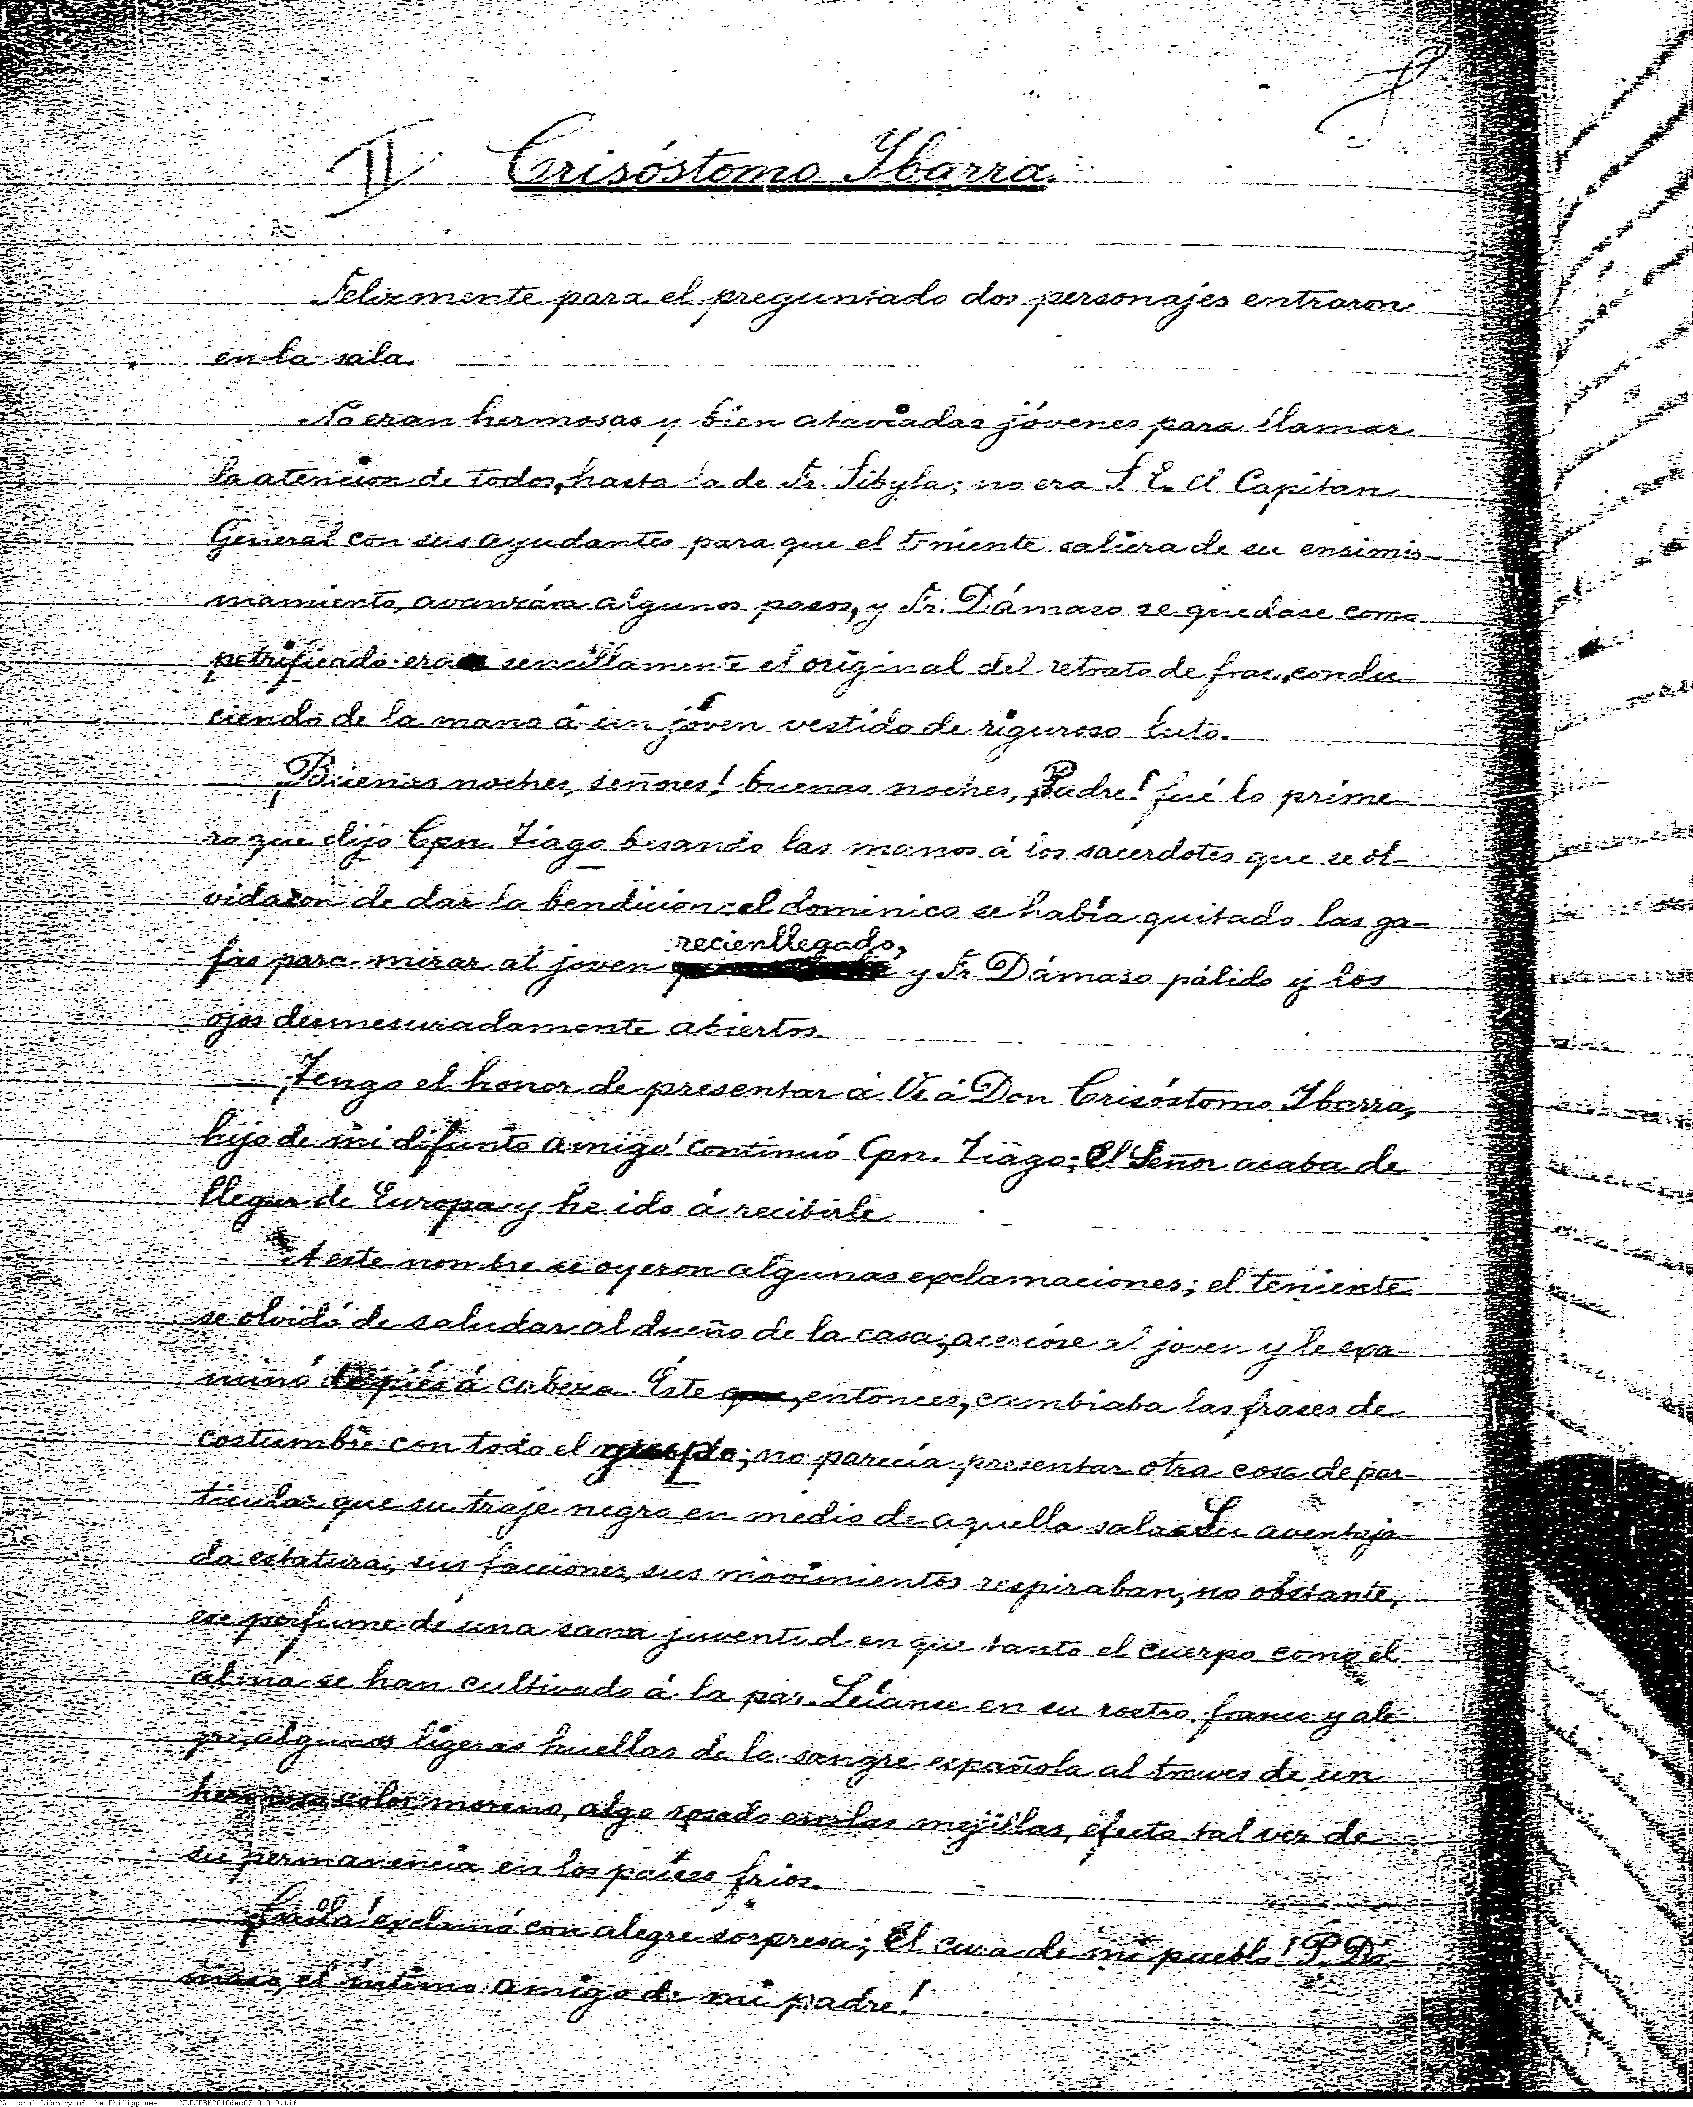 II Crisóstomo Ibarra.
Felizmente para el preguntado dos personajes entraron
en la sala.
No eran hermosas y bien ataviadas jóvenes para llamar
la atencion de todos, hasta la de Fr. Sibyla; no era S. E. el Capitan
General con sus ayudantes para que el teniente saliera de su ensimis-
mamiento, avanzára algunos pasos, y Fr. Dámaso se quedase como
petrificado: era sencillamente el original del retrato de frac, condu-
ciendo de la mano á un jóven vestido de riguroso luto.
Buenas noches, señores! buenas noches, Padre! fué lo prime-
ro que dijo Cpn. Tiago besando las manos á los sacerdotes que se ol-
vidaron de dar la bendicion: el dominico se había quitado las ga-
fas para mirar al joven recienllegado, y Fr. Dámaso pálido y los
ojos desmesuradamente abiertos.
Tengo el honor de presentar á Vs á Don Crisóstomo Ibarra,
hijo de mi difunto amigo! continuó Cpn. Tiago; El Señor acaba de
llegar de Europa y he ido á recibirle.
A este nombre se oyeron algunas exclamaciones; el teniente
se olvidó de saludar al dueño de la casa; acercóse al joven y le exa
minó de piés á cabeza. Éste, entonces, cambiaba las frases de
costumbre con todo el grupo; no parecía presentar otra cosa de par-
ticular que su traje negro en medio de aquella sala. Su aventaja-
da estatura, sus facciones, sus movimientos respiraban, no obstante,
ese perfume de una sana juventud en que tanto el cuerpo como el
alma se han cultivado á la par. Leíanse en su rostro franco y ale
gre, algunas ligeras huellas de la sangre española al traves de un
hermoso color moreno, algo rosado en las mejillas, efecto tal vez de
su permanencia en los paises frios.
Calla! exclamó con alegre sorpresa; El cura de mi pueblo! P. Dá-
maso, el íntimo amigo de mi padre!